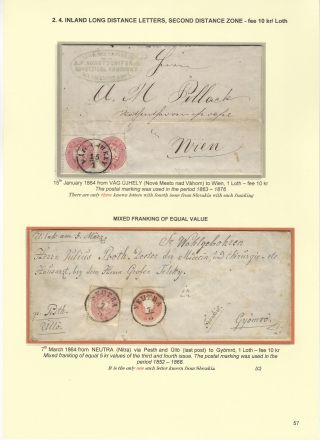 2. 4. INLAND LONG DISTANCE LETTERS, SECOND DISTANCE ZONE - fee 10 kr/ Loth
Herrn
A. M. Pollack
Wien
15th January 1864 from VÁG ÚJHELY (Nové Mesto nad Váhom) to Wien, 1 Loth – fee 10 kr
The postal marking was used in the period 1863 – 1876
There are only three known letters with fourth issue from Slovakia with such franking
MIXED FRANKING OF EQUAL VALUE
Sr Wohlgebohren
Herrn Julius Roth, Doctor der Medicin, und Chirurgie etc.
Hausarzt, bei dem Herrn Grafen
p. Pesth
Üllő
NEUTRA
NEUTRA
Gyömrő
7th March 1864 from NEUTRA (Nitra) via Pesth and Üllő (last post) to Gyömrő, 1 Loth – fee 10 kr
Mixed franking of equal 5 kr values of the third and fourth issue. The postal marking was used in the
period 1852 – 1866.
It is the only one such letter known from Slovakia
(C)
57